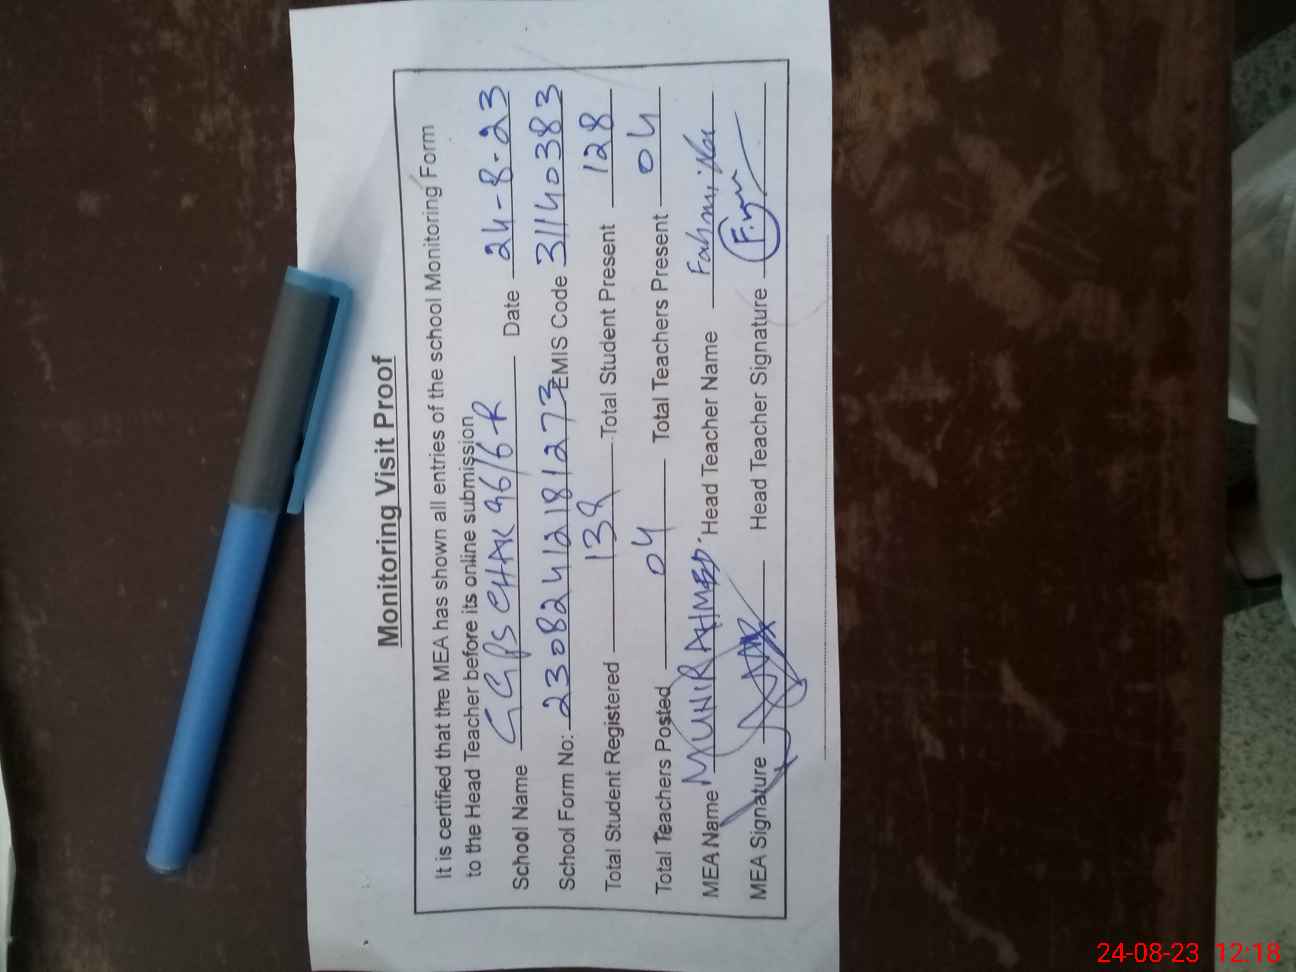 Monitoring Visit Proof
It is certified that the MEA has shown all entries of the school Monitoring Form
to the Head Teacher before its online submission
School Name GGPS CHAK 96/6-R Date 24-8-23
School Form No: 23082412181273 EMIS Code 31140383
Total Student Registered 138 Total Student Present 128
Total Teachers Posted 04 Total Teachers Present 04
MEA Name MUNIR AHMED. Head Teacher Name Fahmi
MEA Signature Head Teacher Signature
24-08-23 12:18